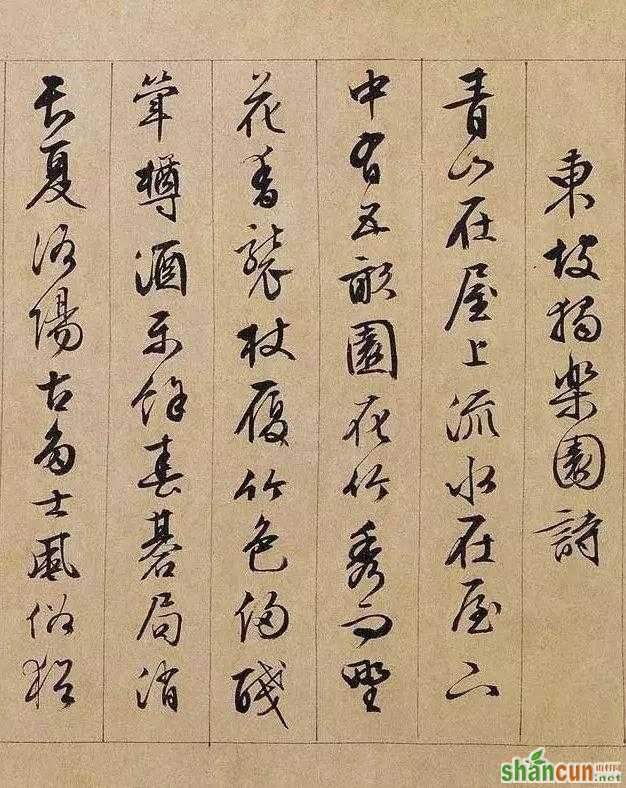 東坡獨樂園詩
青山在屋上流水在屋下
中有五畝園花竹秀而野
花香襲杖屨竹色侵醆
斝樽酒樂餘春碁局消
長夏洛陽古多士風俗猶
shancun
山村网
.net